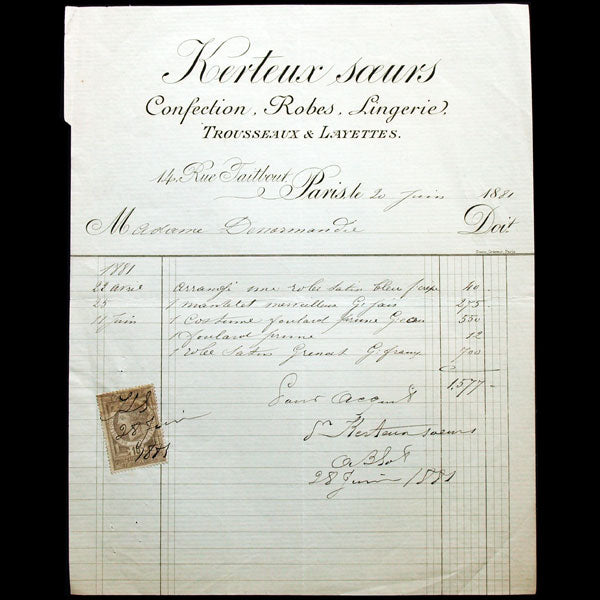 Kerteux sœurs
Confection, Robes, Lingerie.
TROUSSEAUX & LAYETTES.
14, Rue Taitbout
Paris, le 20 Juin 1881
Madame Denormandie Doit
1881
22 avril Arrangé une robe satin bleu 40 -
25 1 mantelet merveilleux G. jais 275
11 Juin 1 Costume foulard prune 550
1 foulard prune 12
1 robe satin Grenat G. 700
1,577 -
Pour Acquit
Kerteux sœurs
28 Juin 1881
28 Juin
1881